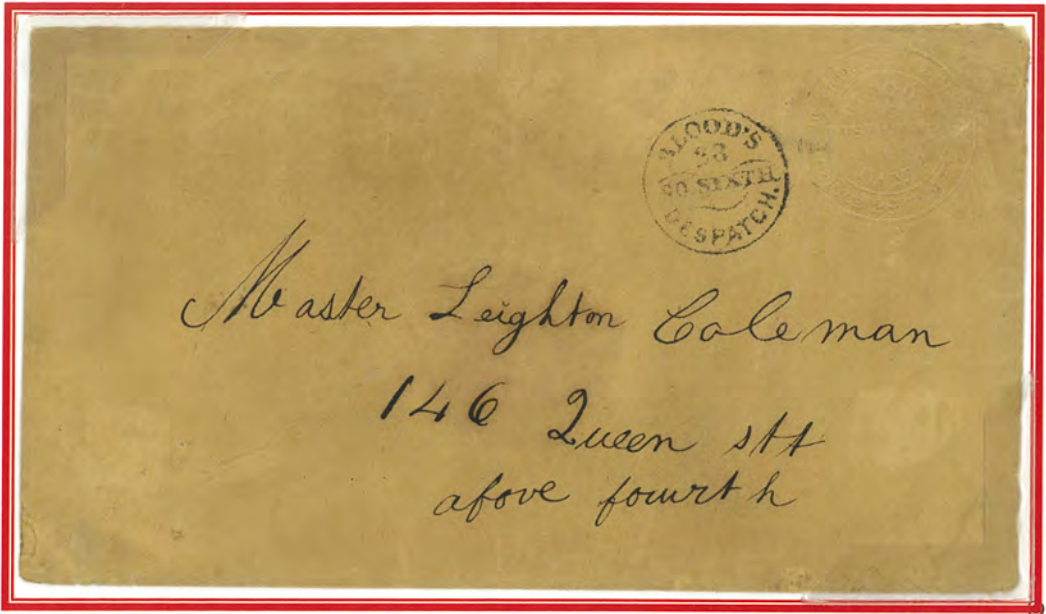 BLOOD'S
28
SIXTH
DESPATCH.
Master Leighton Coleman
146 Queen stt
afove fourth